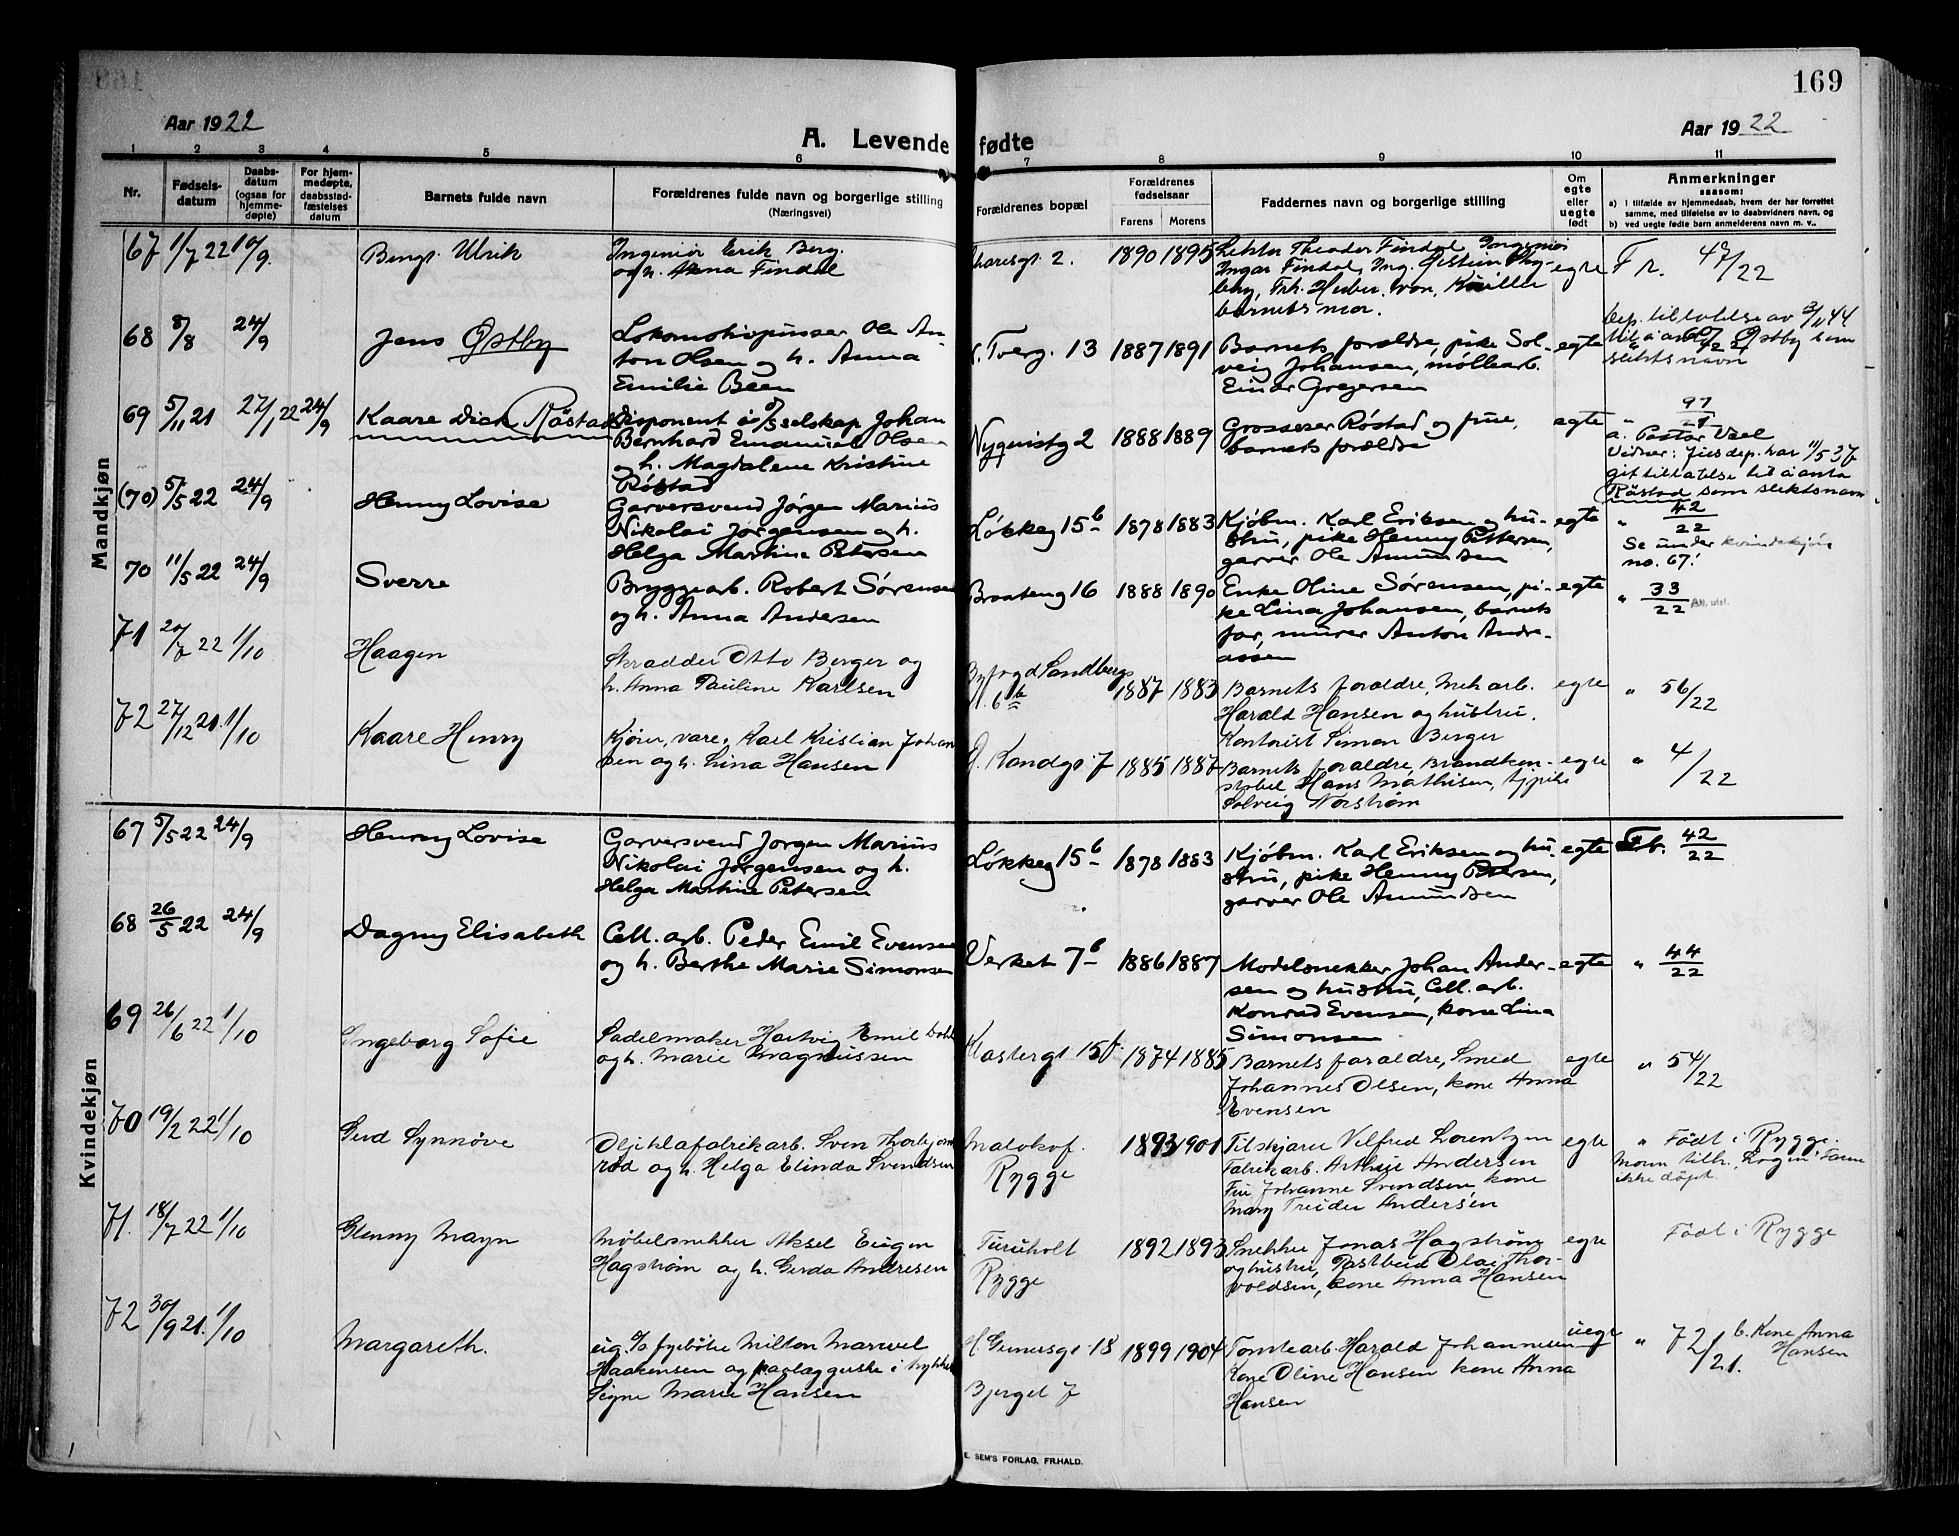 169
Aar 1922
Aar 1922
A. Levende fødte
1 2 3 4 5 6 7 8 9 10 11
Nr.
Fødsels-
datum
Daabs-
datum
(ogsaa for
hjemme-
døpte)
For hjem-
medøpte,
daabsstad-
fæstelses
datum
Barnets fulde navn
Forældrenes fulde navn og borgerlige stilling
(Næringsvei)
Forældrenes bopæl
Forældrenes
fødselsaar
Farens Morens
Faddernes navn og borgerlige stilling
Om
egte
eller
uegte
født
Anmerkninger
saasom:
a) I tilfælde av hjemmedaab, hvem der har forrettet
samme, med tilføielse av to daabsvidners navn, og
b) ved uegte født barn anmelderens navn m. v..
Mandkjøn
67 1/7 22 10/9
Bengt Ulrik
Ingeniør Erik Berg.
og h. Anna Findal
2.
1890 1895
Lektor Theodor Findal, Ingeniør
Ingar Findal, Ing.
barnets mor.
egte
F r. 49/22
68 8/8 24/9
Jens Østby
Lokomotivpusser Ole An-
ton Olsen og h. Anna
Emilie Been
Tverg. 13
1887 1891
Barnets forældre, pike Sol-
veig Johansen, møllearb.
Einar Gregersen
egte
Dep. tillatelse av 3/11 44
til å anta Østby som
slektsnavn
69 5/11 21 27/1 22 24/9
Kaare Dick Röstad
Disponent i o/s selskap Johan
Bernhard Emanuel Olsen
og h. Magdalene Kristine
Röstad
Nyquistg 2
1888 1889
Grosserer Røstad og frue,
barnets forældre
egte
" 97/21
a. Pastor Vael
Vidner: Jusdep. har 11/5 37
git tillatelse til å anta
Röstad som slektsnavn
(70) 5/5 22 24/9
Henny Lovise
Garversvend Jørgen Marius
Nikolai Jørgensen og h.
Helga Martine Petersen
Løkkeg 15b
1878 1883
Kjøbm. Karl Eriksen og hu-
stru, pike Henny Pettersen,
garver Ole Amundsen
egte
" 42/22
Se under kvindekjøn
no. 67!
70 11/5 22 24/9
Sverre
Bryggearb. Robert Sørensen
og h. Anna Andersen
Braateng 16
1888 1890
Enke Oline Sørensen, pi-
ke Lina Johansen, barnets
far, murer Anton Andre-
assen
egte
" 33/22
71 20/7 22 1/10
Haagen
Skrædder Otto Berger og
h. Anna Pauline Karlsen
Byfogd Sandbergs
6b
1887 1883
Barnets forældre, Mek arb.
Harald Hansen og hustru.
Kontorist Simon Berger
egte
" 56/22
72 27/12 21. 1/10
Kaare Henry
Kjører, vare, Karl Kristian Johan
sen og h. Lina Hansen
Kondgs. 7
1885 1887
Barnets forældre, Brandkon-
stabel Hans Mathisen, typike
Solveig Norstrøm
egte
" 4/22
Kvindekjøn
67 5/5 22 24/9
Henny Lovise
Garversvend Jørgen Marius
Nikolai Jørgensen og h.
Helga Martine Petersen
Løkkeg 15b
1878 1883
Kjøbm. Karl Eriksen og hu-
stru, pike Henny Petersen,
garver Ole Amundsen
egte
F.b. 42/22
68 26/5 22 24/9
Dagny Elisabeth
Cell. arb. Peder Emil Evensen
og h. Berthe Marie Simonsen
Verket 7b
1886 1887
Modelsnekker Johan Ander-
sen og hustru, Cell. arb.
Konrad Evensen, kone Lina
Simonsen
egte
" 44/22
69 26/6 22 1/10
Ingeborg Sofie
Sadelmaker Hartvig Emil Dahl
og h. Marie Magnussen
1874 1885
Barnets forældre, Smed
Johannes Olsen, kone Anna
Evensen
egte
" 54/22
70 19/2 22 1/10
Gerd Synnøve
Oljeklæfabrikarb. Sven Thorbjørns
rød og h. Helga Elinda Svendsen
Malokof.
Rygge
1893 1901
Tilskjærer Vilfred Lorentzen
Fabrikarb. Arthur Andersen
Fru Johanne Svendsen kone
Mary Andersen
egte
" Født i Rygge.
Moren tilh. Logen. Faren
ikke døpt.
71. 18/7 22 1/10
Glenny Mayn
Møbelsnekker Aksel Eugen
Hagstrøm og h. Gerda Andresen
Furuholt
Rygge
1892 1893
Snekker Jonas Hagstrøm
og hustru, Postbud Olai Thor-
voldsen, kone Anna Hansen
egte
Født i Rygge
72 30/9 21. 1/10
Margareth.
ug. s/ fyrbøter Milton Marvel
Haakensen og paalægguske i
Signe Marie Hansen
18
Bjerget 7
1899 1904
Tomtearb. Harald Johannesen
Kone Oline Hansen kone Anna
Hansen
uegte
" 72/21. b. Kone Anna
Hansen
E. SEM'S FORLAG, FR.HALD.